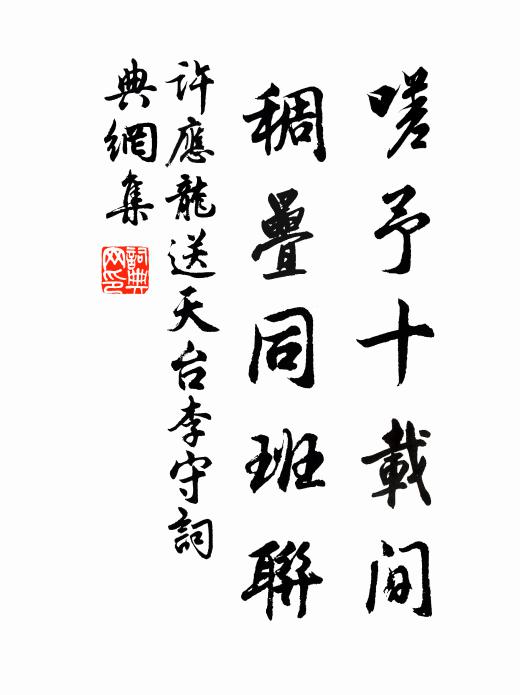 嗟予十載间
稠疊同班聯
許應龍送天台李守詞
典網集
詞典
网印